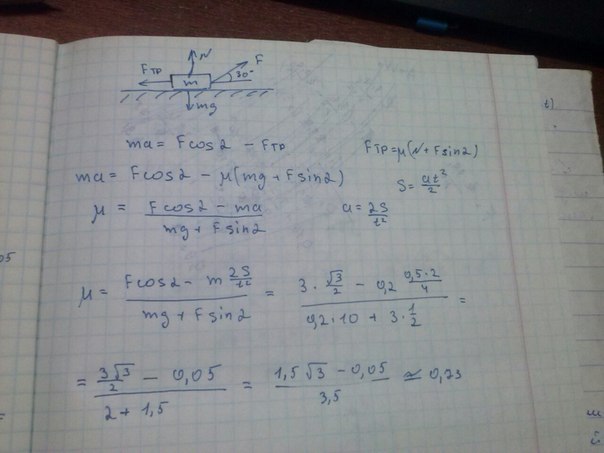 N
Fтр
m
F
30°
mg
ma = Fcos2 - Fтр
Fтр = μ(N + Fsin2)
ma = Fcos2 - μ(mg + Fsin2)
S = at²/2
μ = (Fcos2 - ma)/(mg + Fsin2)
a = 2S/t²
μ = (Fcos2 - m 2S/t²)/(mg + Fsin2) = (3·√3/2 - 0,2 0,5·2/4)/(0,2·10 + 3·1/2) =
= (3√3/2 - 0,05)/(2 + 1,5) = (1,5√3 - 0,05)/3,5 ≃ 0,73
05
t)